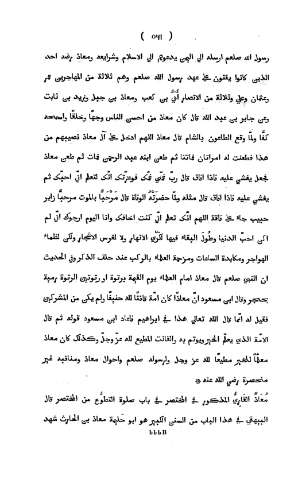 ( ٥٦١ )
رسول الله صلعم ارسله الى اليمن يدعوهم الى الاسلام وشرايعه ومعاذ رضه احد
الذين كانوا يفتون في عهد رسول الله صلعم وهم ثلاثة من المهاجرين عمر
وعثمان وعلي وثلاثة من الانصار أُبيّ بن كعب ومعاذ بن جبل وزيد بن ثابت
وعن جابر بن عبد الله قال كان معاذ من احسن الناس وجهًا وخلقًا واسمحه
كفًّا ولمّا وقع الطاعون بالشام قال معاذ اللهم ادخل على آل معاذ نصيبهم من
هذا فطعنت له امراتان فماتتا ثم طعن ابنه عبد الرحمن فمات ثم طعن معاذ
فجعل يغشى عليه فاذا افاق قال ربّ غُمّني غمّك فوعزّتك انك لتعلم اني احبّك ثم
يغشى عليه فاذا افاق قال مثله ولمّا حضرتْه الوفاة قال مَرْحَبًا بالموت مرحبًا زاير
حبيب جاء على فاقة اللهم انك تعلم اني كنت اخافك وانا اليوم ارجوك اني لم
اكن احبّ الدنيا وطُولَ البقاء فيها لكَرْي الانهار ولا لغرس الاشجار ولكن لظماء
الهواجر ومكابدة الساعات ومزحمة العلماء بالركب عند حلف الذكر وفي الحديث
ان النبي صلعم قال معاذ امام العلماء يوم القيمة برتوة او رتوتين الرتوة رمية
بحجر وقال ابن مسعود انّ معاذًا كان اُمة قانتًا لله حنيفًا ولم يكن من المشركين
فقيل له انّما قال الله تعالى هذا في ابراهيم فاعاد ابن مسعود قوله ثم قال
الامّة الذي يعلّم الخير ويوتم به والقانت المطيع لله عزّ وجلّ وكذلك كان معاذ
معلّمًا للخير مطيعًا لله عزّ وجلّ ولرسوله صلعم واحوال معاذ ومناقبه غير
منحصرة رضي الله عنه
مُعَاذٌ القَارِيُّ المذكور في المختصر في باب صلوة التطوّع من المختصر قال
البيهقي في هذا الباب من السنن الكبير هو ابو حليمة معاذ بن الحارث شهد